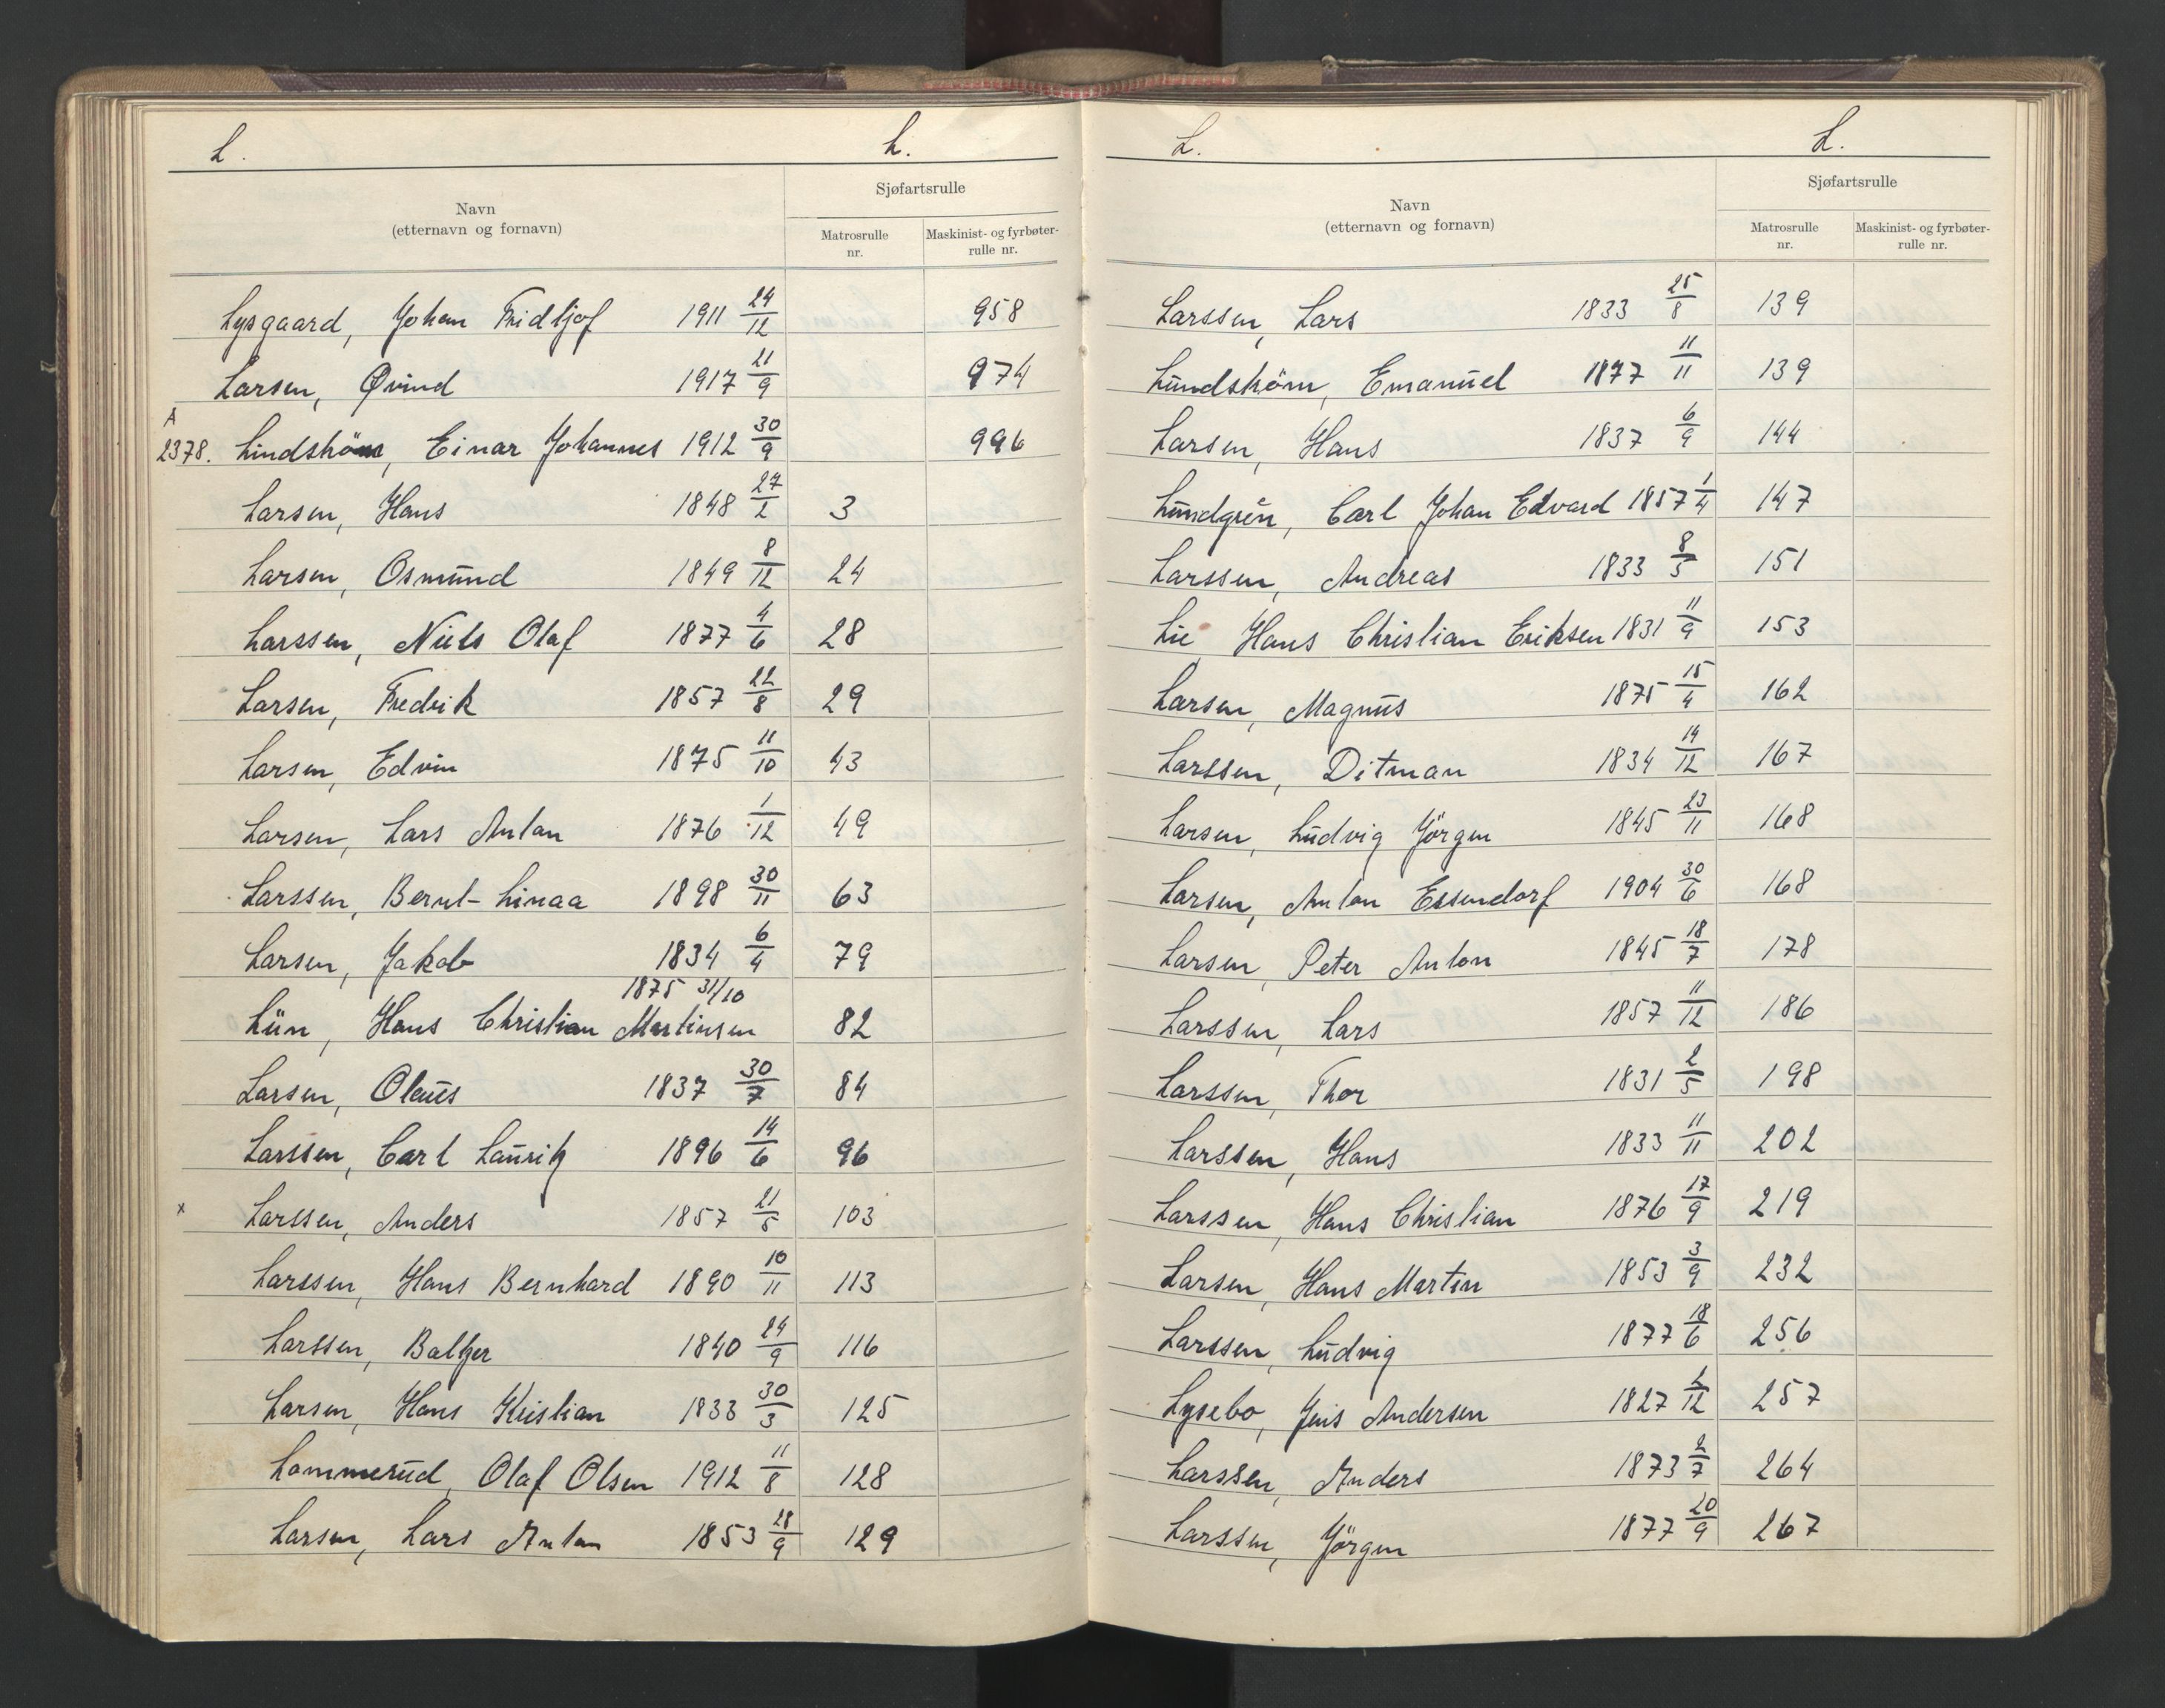 L. L.
Navn
(etternavn og fornavn)
Sjøfartsrulle
Matrosrulle
nr.
Maskinist- og fyrbøter-
rulle nr.
Lysgaard, Johan Fridtjof 1911 24/12 958
Larsen, Øvind 1917 21/9 974
A
2378. Lindström, Einar Johannes 1912 30/9 996
Larsen, Hans 1848 27/2 3
Larsen, Osmund 1849 8/12 24
Larssen, Niels Olaf 1877 4/6 28
Larsen, Fredrik 1857 22/8 29
Larsen, Edvin 1875 11/10 43
Larsen, Lars Anton 1876 1/12 49
Larssen, Bernt-Linaa 1898 30/11 63
Larsen, Jakob 1834 6/4 79
1875 31/10
Lün, Hans Christian Martinsen 82
Larsen, Olaus 1837 30/7 84
Larssen, Carl Lauritz 1896 14/6 96
x Larssen, Anders 1857 21/5 103
Larssen, Hans Bernhard 1890 10/11 113
Larssen, Baltzer 1840 24/9 116
Larsen, Hans Kristian 1833 30/3 125
Lommerud, Olaf Olsen 1912 11/8 128
Larsen, Lars Anton 1853 28/9 129
L. L.
Navn
(etternavn og fornavn)
Sjøfartsrulle
Matrosrulle
nr.
Maskinist- og fyrbøter-
rulle nr.
Larssen, Lars 1833 25/8 139
Lundström, Emanuel 1877 11/11 139
Larsen, Hans 1837 6/9 144
Lundgren, Carl Johan Edvard 1857 1/4 147
Larssen, Andreas 1833 8/5 151
Lie Hans Christian Eriksen 1831 11/9 153
Larsen, Magnus 1875 15/4 162
Larssen, Ditman 1834 14/12 167
Larsen, Ludvig Jörgen 1845 23/11 168
Larsen, Anton Essendorf 1904 30/6 168
Larsen, Peter Anton 1845 18/7 178
Larssen, Lars 1857 11/12 186
Larssen, Thor 1831 2/5 198
Larssen, Hans 1833 11/11 202
Larssen, Hans Christian 1876 17/9 219
Larsen, Hans Martin 1853 3/9 232
Larssen, Ludvig 1877 18/6 256
Lysebo, Jens Andersen 1827 2/12 257
Larssen, Anders 1873 2/7 264
Larssen, Jörgen 1877 20/9 267